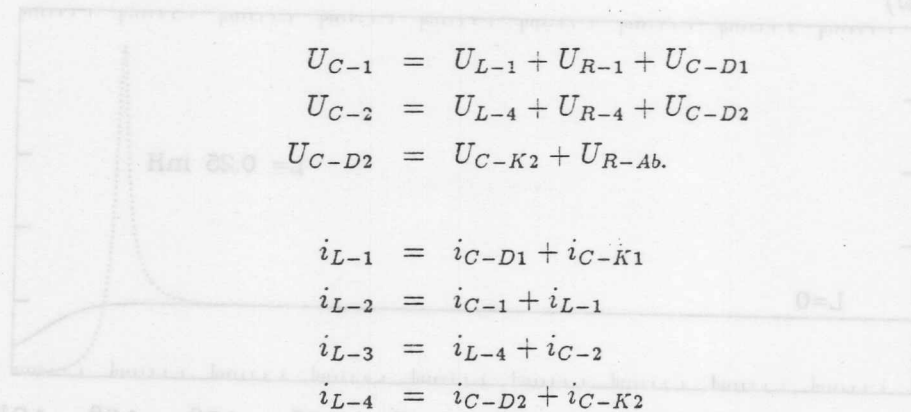 U_{C-1} = U_{L-1} + U_{R-1} + U_{C-D1}
U_{C-2} = U_{L-4} + U_{R-4} + U_{C-D2}
U_{C-D2} = U_{C-K2} + U_{R-Ab.}
i_{L-1} = i_{C-D1} + i_{C-K1}
i_{L-2} = i_{C-1} + i_{L-1}
i_{L-3} = i_{L-4} + i_{C-2}
i_{L-4} = i_{C-D2} + i_{C-K2}
L= 0.25 mH
L=0